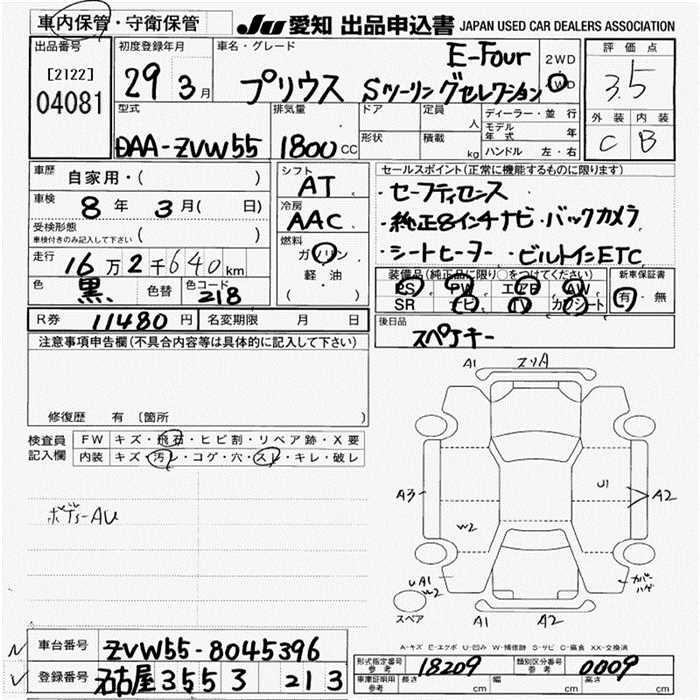 車内保管・守衛保管
JU 愛知 出品申込書 JAPAN USED CAR DEALERS ASSOCIATION
出品番号
[2122]
04081
初度登録年月
29 3月
車名・グレード
E-Four
プリウス Sツーリングセレクション
2WD
4WD
評価点
3.5
外装 内装
C B
型式
DAA-ZVW55
排気量
1800 CC
ドア
形状
定員 人
積載 kg
ディーラー・並行
モデル年式 年
ハンドル 左・右
車歴 自家用・( )
車検 8年 3月(日)
受検形態
車検付きのみ記入して下さい ( )
走行 16万2千640km
色 黒 色替 色コード 218
シフト
AT
冷房
AAC
燃料
ガソリン
軽・油
( )
セールスポイント(正常に機能するものに限ります)
・セーフティセンス
・純正8インチナビ・バックカメラ
・シートヒーター・ビルトインETC
装備品(純正品に限り○をつけてください)
PS PW エアB AW
SR ナビ TV カワシート
新車保証書
有・無
R券 11480円 名変期限 月 日
後日品
スペアキー
注意事項申告欄(不具合内容等は具体的に記入して下さい)
修復歴 有〔箇所
検査員記入欄
FW キズ・飛石・ヒビ割・リペア跡・X要
内装 キズ・汚レ・コゲ・穴・スレ・キレ・破レ
A1
A3
U1
A2
W2
UA1
W2
カバーハゲ
スペア
A1
A2
A-キズ E-エクボ U-凹み W-補修跡 S-サビ C-腐食 XX-交換済
車台番号 ZVW55-8045396
登録番号 名古屋355 3 213
形式指定番号 参考 18209
類別区分番号 参考 0009
車庫証明用 参考 長さ cm 幅 cm 高さ cm